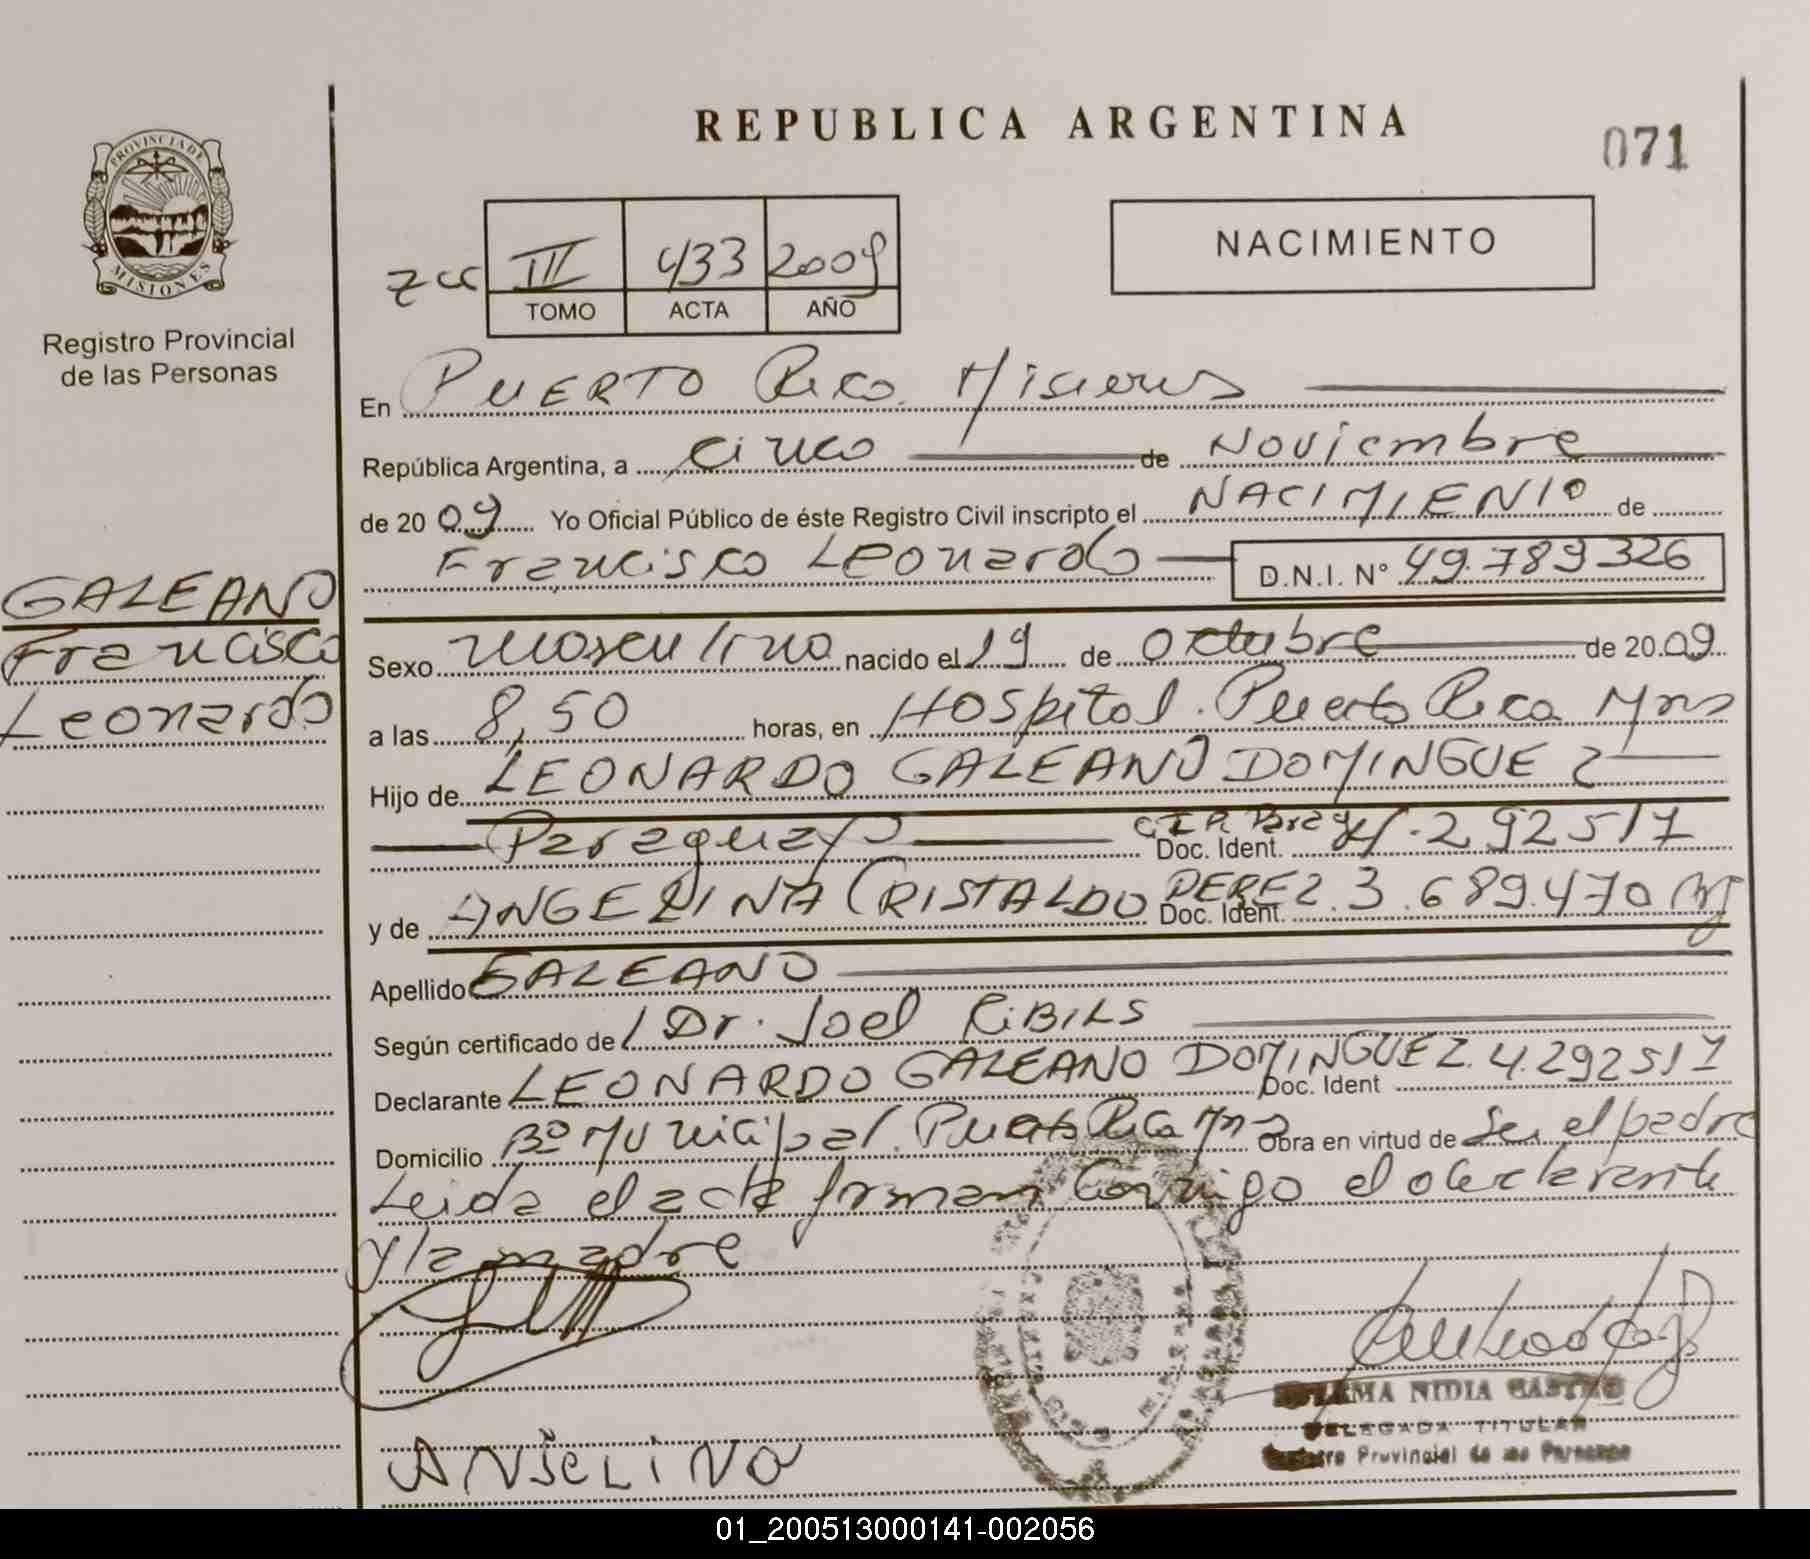 REPUBLICA ARGENTINA
071
PROVINCIA DE
MISIONES
Registro Provincial
de las Personas
NACIMIENTO
III 433 2009
TOMO ACTA AÑO
En PUERTO Rico. Misiones
República Argentina, a cinco de Noviembre
de 20 09 Yo Oficial Público de éste Registro Civil inscripto el NACIMIENTO de
Francisco Leonardo D.N.I. N° 49.789326
GALEANO
Francisco
Leonardo
Sexo masculino nacido el 19 de Octubre de 20.09
a las 8,50 horas, en Hospital. Puerto Rico Mns
Hijo de LEONARDO GALEANO DOMINGUEZ
Paraguayo Doc. Ident. 4.292517
y de ANGELINA CRISTALDO PEREZ Doc. Ident. 3.689.470
Apellido GALEANO
Según certificado de Dr. Joel RIBILS
Declarante LEONARDO GALEANO DOMINGUEZ Doc. Ident 4.292517
Domicilio Bº Municipal. Puerto Rico Mns Obra en virtud de Ser el padre
Leida el acta firman Conmigo el declarante
y la madre
NIDIA CASTRO
DELEGADA TITULAR
Registro Provincial de las Personas
ANJELINA
01_200513000141-002056